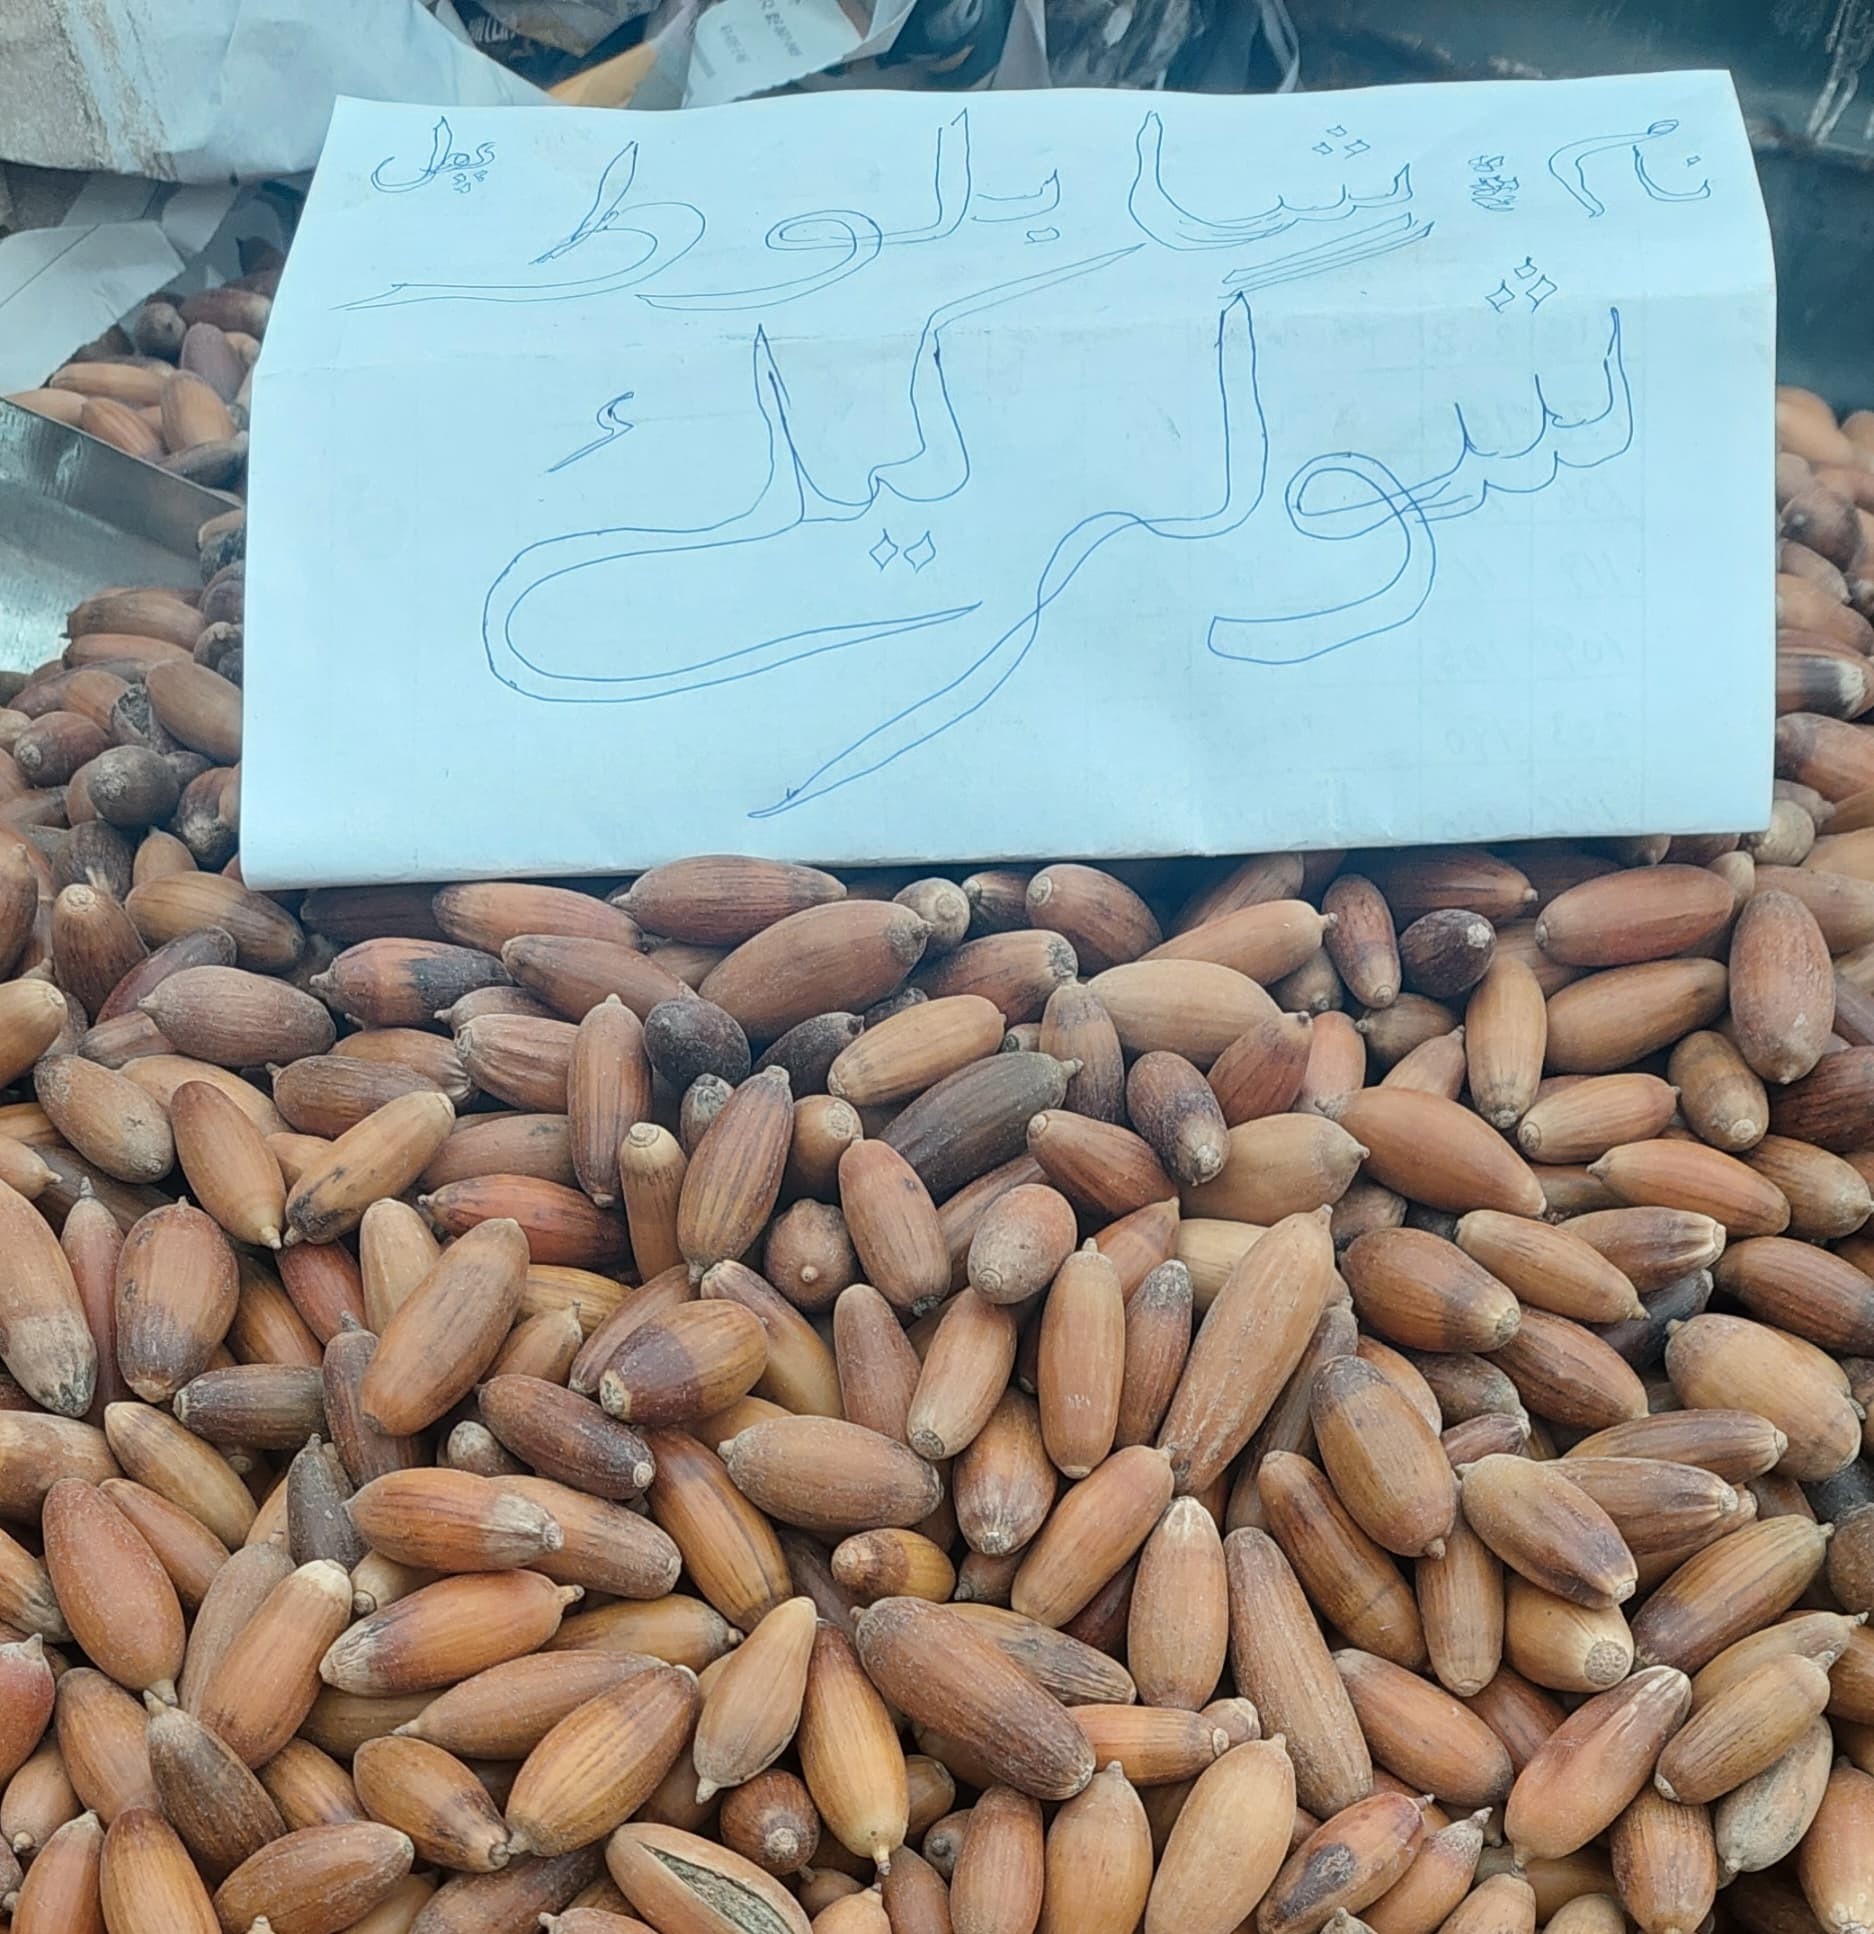 نام : شا بلوط پھل
شوگر کیلئے